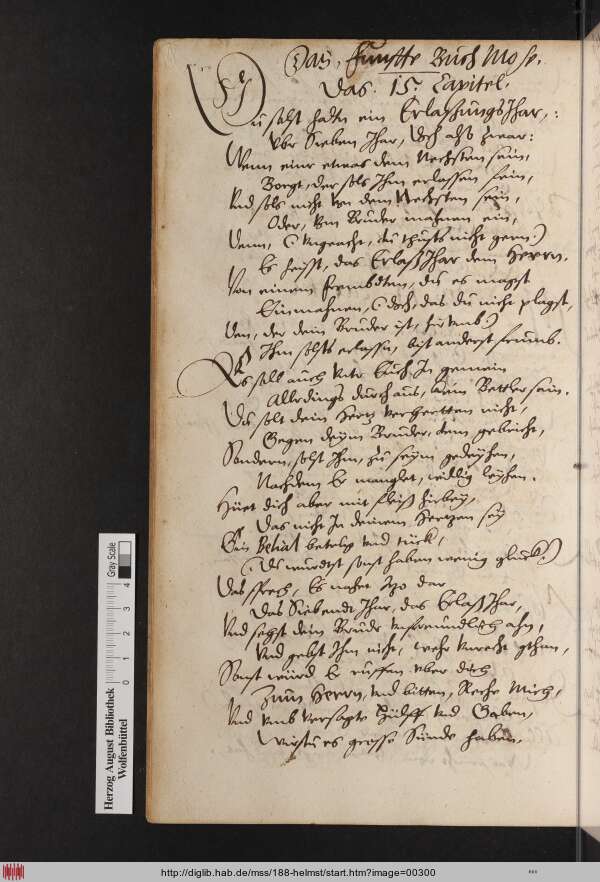 Das, Funffte Buch Mose.
Das. 15. Capitel.
Du solst haltn ein Erlassungs Jhar,:
Vbr Sieben Jhar, doch also zwar:
Wenn einr etwas dem Nechsten sein,
Borgt, der sols Jhm erlassen fein,
Vnd sols nicht von dem Nechsten sein,
Oder, vom Bruder mahnen ein,
Denn, (Vngeacht, du thusts nicht gern.)
Es heisst, das Erlass Jhar dem Herrn.
Von einem frembdten, du es magst
Einmahnen, (doch, das du nicht plagst,
Den, der dein Bruder ist,
Jhm solsts erlassn, bist anderst frumb.
Es soll auch vntr Euch Jn gemein
Allerdings durchaus, kein Bettler sein.
Du solt dein Hertz verhertten nicht,
Gegen deim Bruder, dem gebricht,
Sondern, solst Jhm, zu seim gedeyhen,
Nachdem Er manglet, willig leyhen.
Hüet dich aber mit fleiß hirbey,
Das nicht Jn deinem Hertzen sey
Ein Belial betrug vnd tück,
(Du wurdest sonst haben wenig glück.)
Das sprech, Es nahet Jzo dar
Das Siebende Jhar, das Erlass Jhar,
Vnd sehst dein Brudr vnfreundlich ahn,
Vnd gebst Jhm nicht, vnrecht gthan,
Sonst würd Er ruffen vber dich
Zum Herrn, vnd bitten, Reche Mich,
Vnd vmb versagte Hülff vnd Gaben,
Wirstu es grosse Sünde haben.
Herzog August Bibliothek
Wolfenbüttel
Gray Scale
0 1 2 3 4
http://diglib.hab.de/mss/188-helmst/start.htm?image=00300